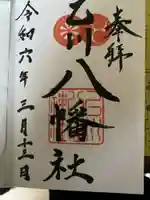 奉拝
乙川八幡社
令和六年三月十三日